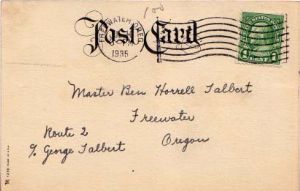 100
FREEWATER, OREG.
1935
Post Card
1 1
Master Ben Horrell Talbert
Freewater
Oregon
Route 2
% George Talbert